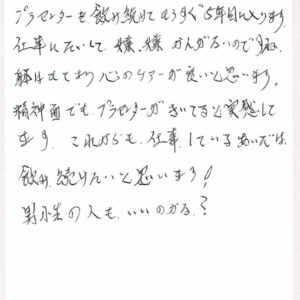 プラセンターを飲み続けてもうすぐ5年目に入ります。
仕事にたいして嫌、嫌かんがないのですね、
躰はもとより心のケアーが良いと思います。
精神面でもプラセンターがきいてると実感して
ます。これからも、仕事しているあいだは、
飲み続けたいと思います!
男性の人も、いいのかな?